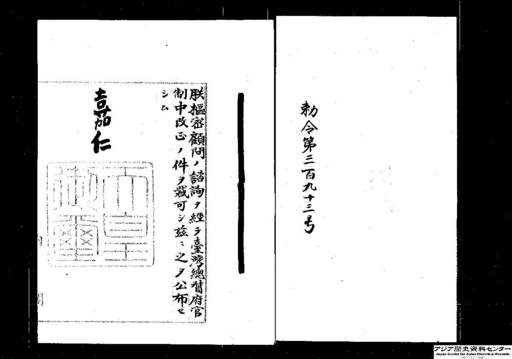 勅令第三百九十三号
朕樞密顧問ノ諮詢ヲ經テ臺灣總督府官
制中改正ノ件ヲ裁可シ茲ニ之ヲ公布セ
シム
嘉仁
天皇御璽
アジア歴史資料センター
Japan Center for Asian Historical Records